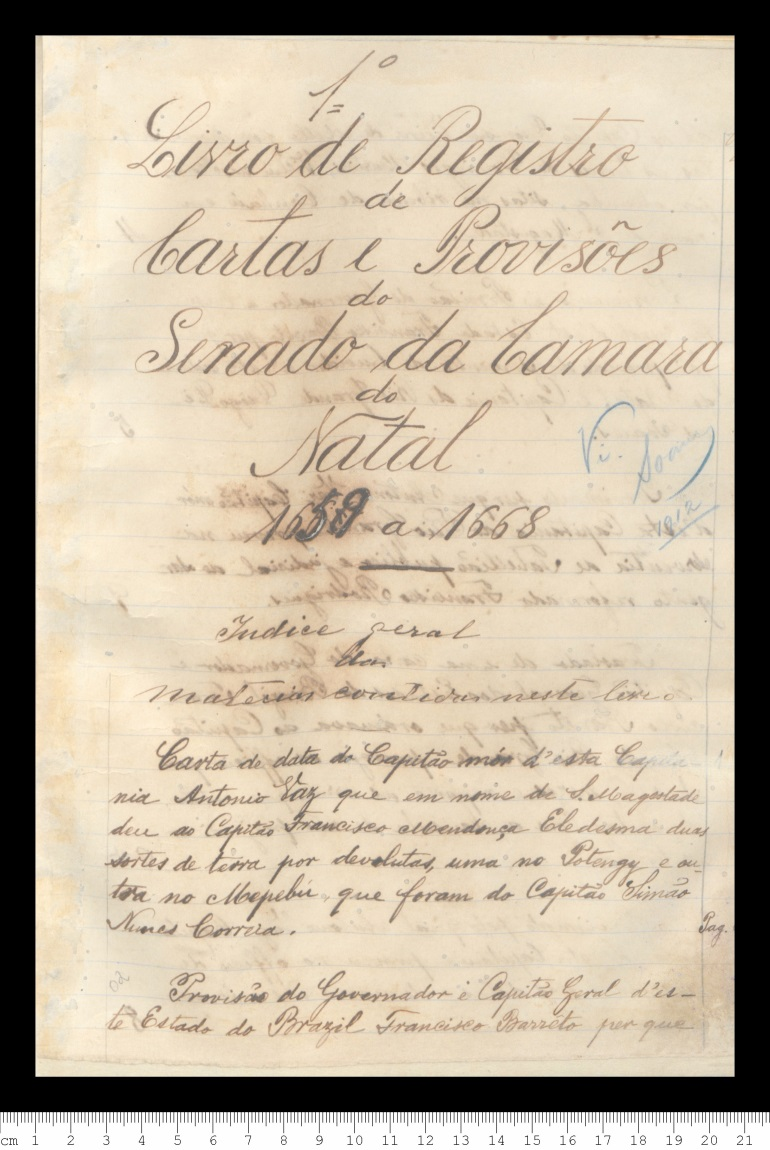 1º
Livro de Registro
de
Cartas e Provisões
do
Senado da Camara
do
Natal
Vi.
1912
1659 a 1668
Indice geral
das
materias contidas neste livro
Carta de data do Capitão mór d'esta Capita-
nia Antonio Vaz que em nome de S. Magestade
deu ao Capitão Francisco Mendonça Eledesma duas
sortes de terra por devolutas, uma no Potengy e ou-
tra no Mepebú, que foram do Capitão Simão
Nunes Corrêa.
Pag.
Provisão do Governador e Capitão Geral d'es-
te Estado do Brazil Francisco Barreto per que
cm 1 2 3 4 5 6 7 8 9 10 11 12 13 14 15 16 17 18 19 20 21